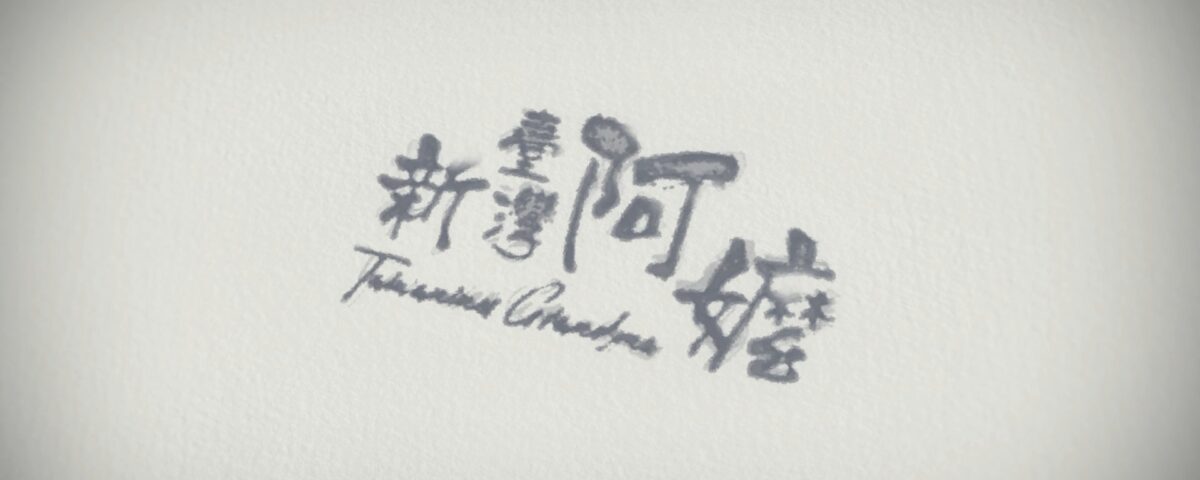 新臺灣阿嬤
Taiwanese Grandma